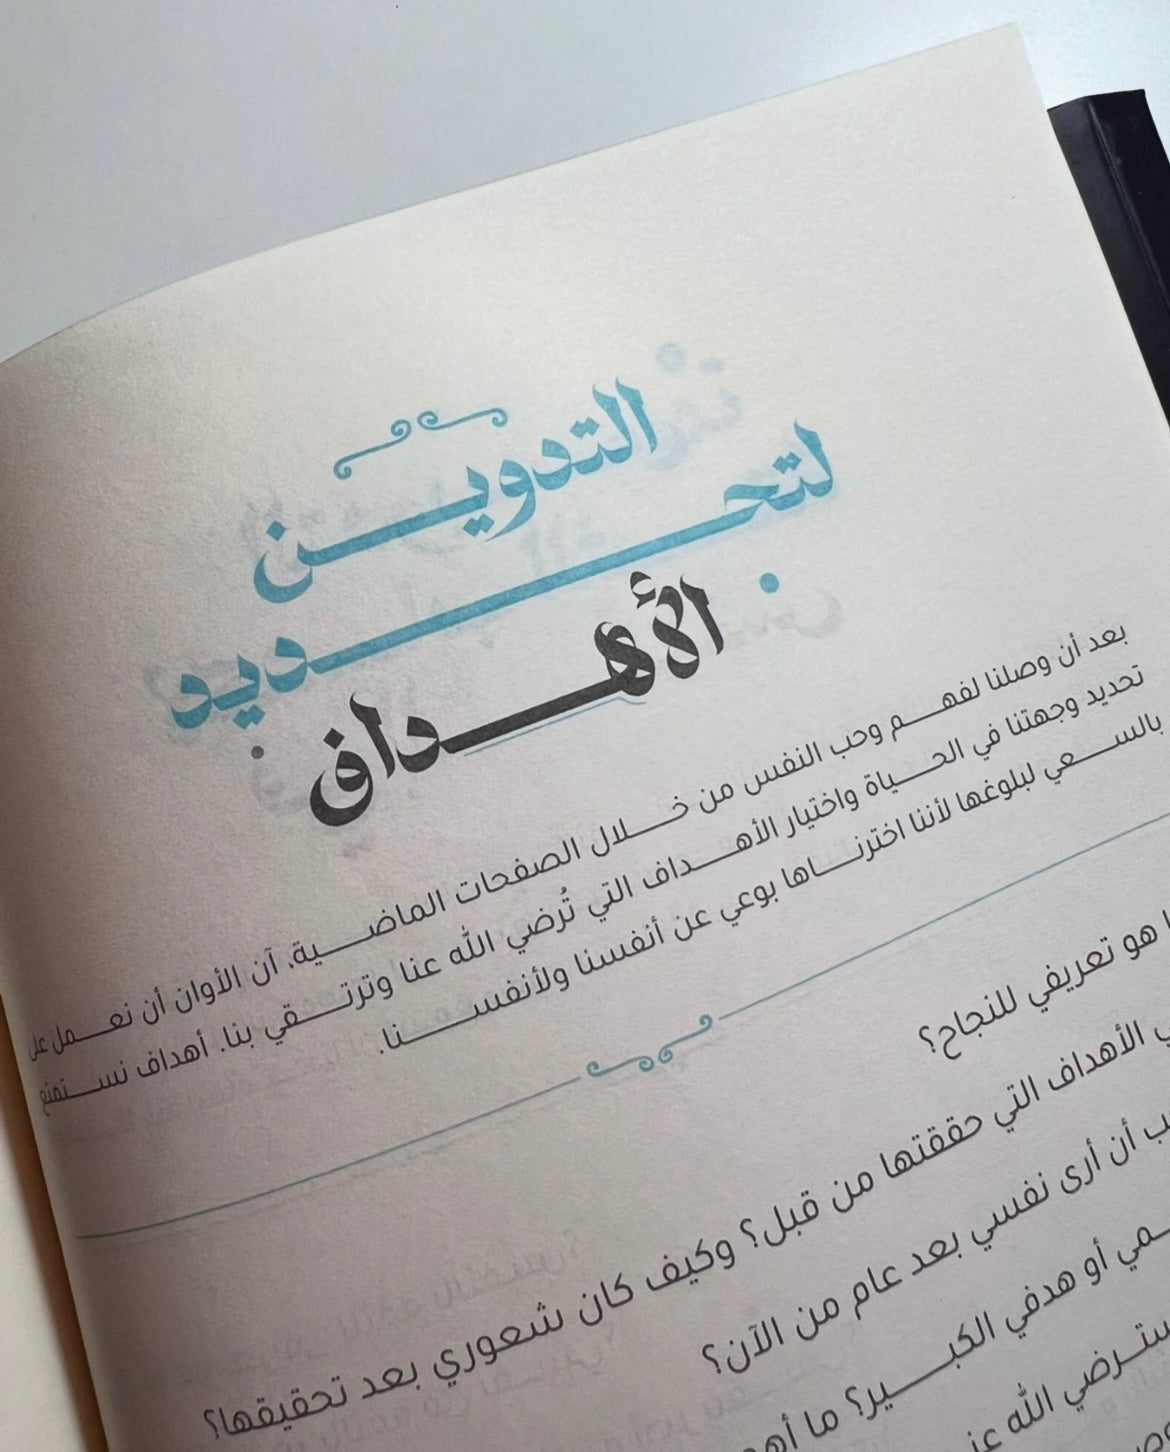 التدويـــن
لتحـــديد
الأهـــداف
بعد أن وصلنا لفهـــم وحب النفس من خـــلال الصفحات الماضـــية، آن الأوان أن نعـــمل على
تحديد وجهتنا في الحـــياة واختيار الأهـــداف التي تُرضي الله عنا وترتـــقي بنا. أهداف نســـتمتع
بالســـعي لبلوغها لأننا اخترنـــاها بوعي عن أنفسنا ولأنفســـنا.
هو تعريفي للنجاح؟
الأهداف التي حققتها من قبل؟ وكيف كان شعوري بعد تحقيقها؟
أن أرى نفسي بعد عام من الآن؟
أو هدفي الكبـــير؟ ما
الله